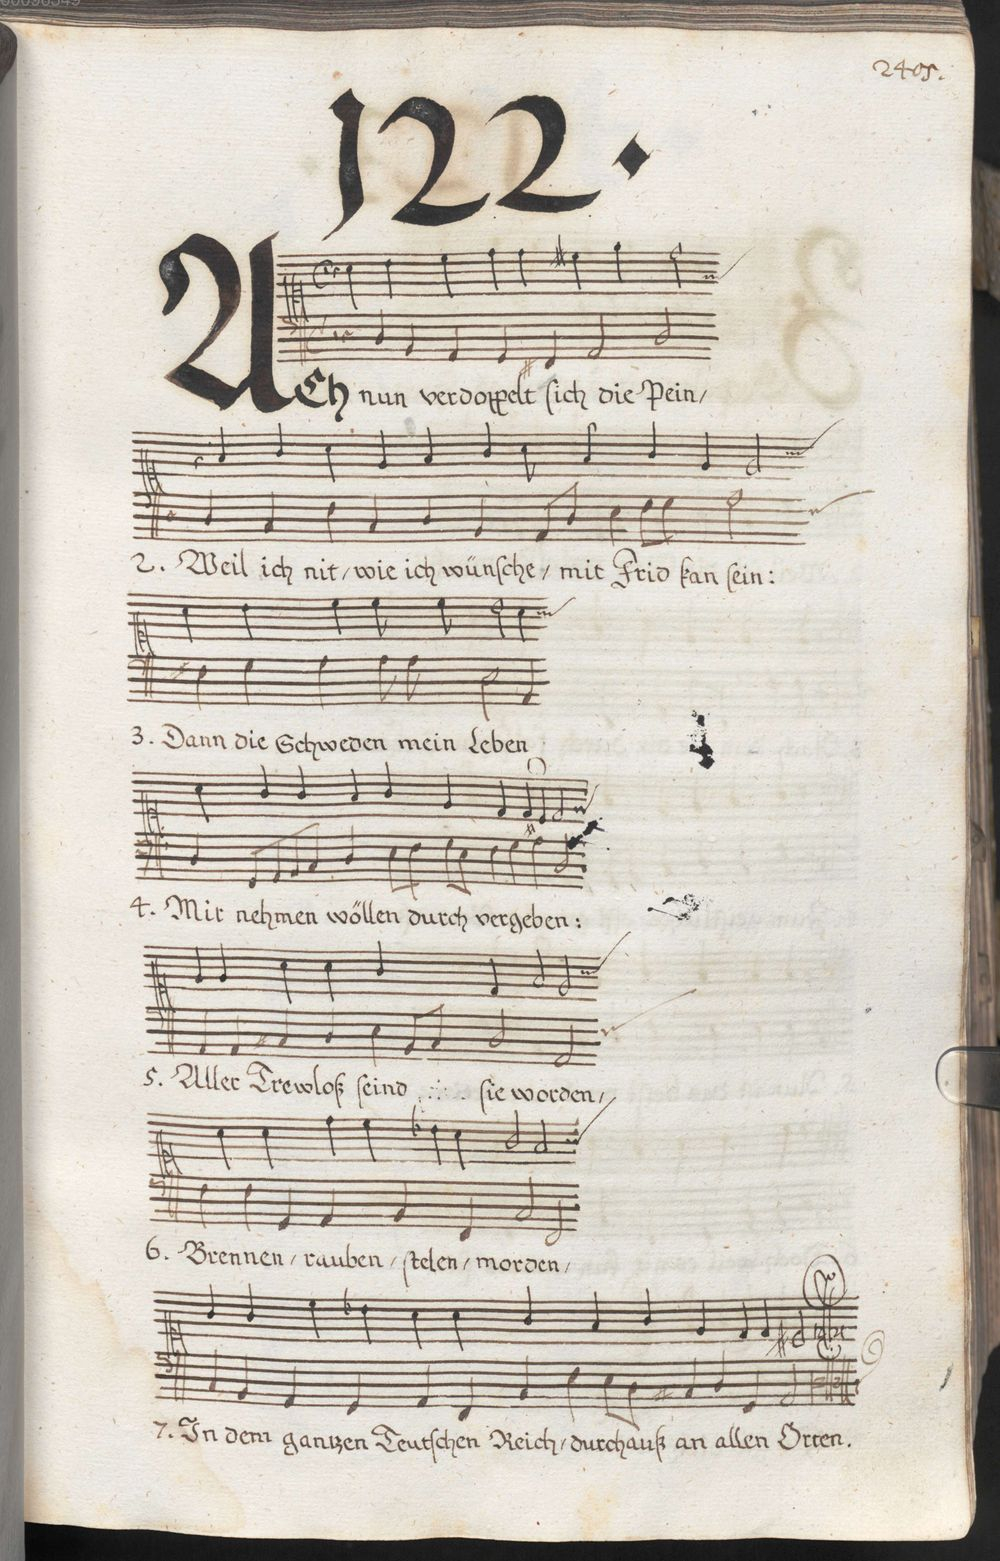 240r.
122.
ACh nun verdoppelt sich die Pein/
2. Weil ich nit/ wie ich wünsche/ mit Frid kan sein:
3. Dann die Schweden mein Leben
4. Mir nehmen wöllen durch vergeben:
5. Aller Trewloß seind .:. sie worden/
6. Brennen/ rauben/ stelen/ morden/
7. In dem gantzen Teutschen Reich/ durchauß an allen Orten.